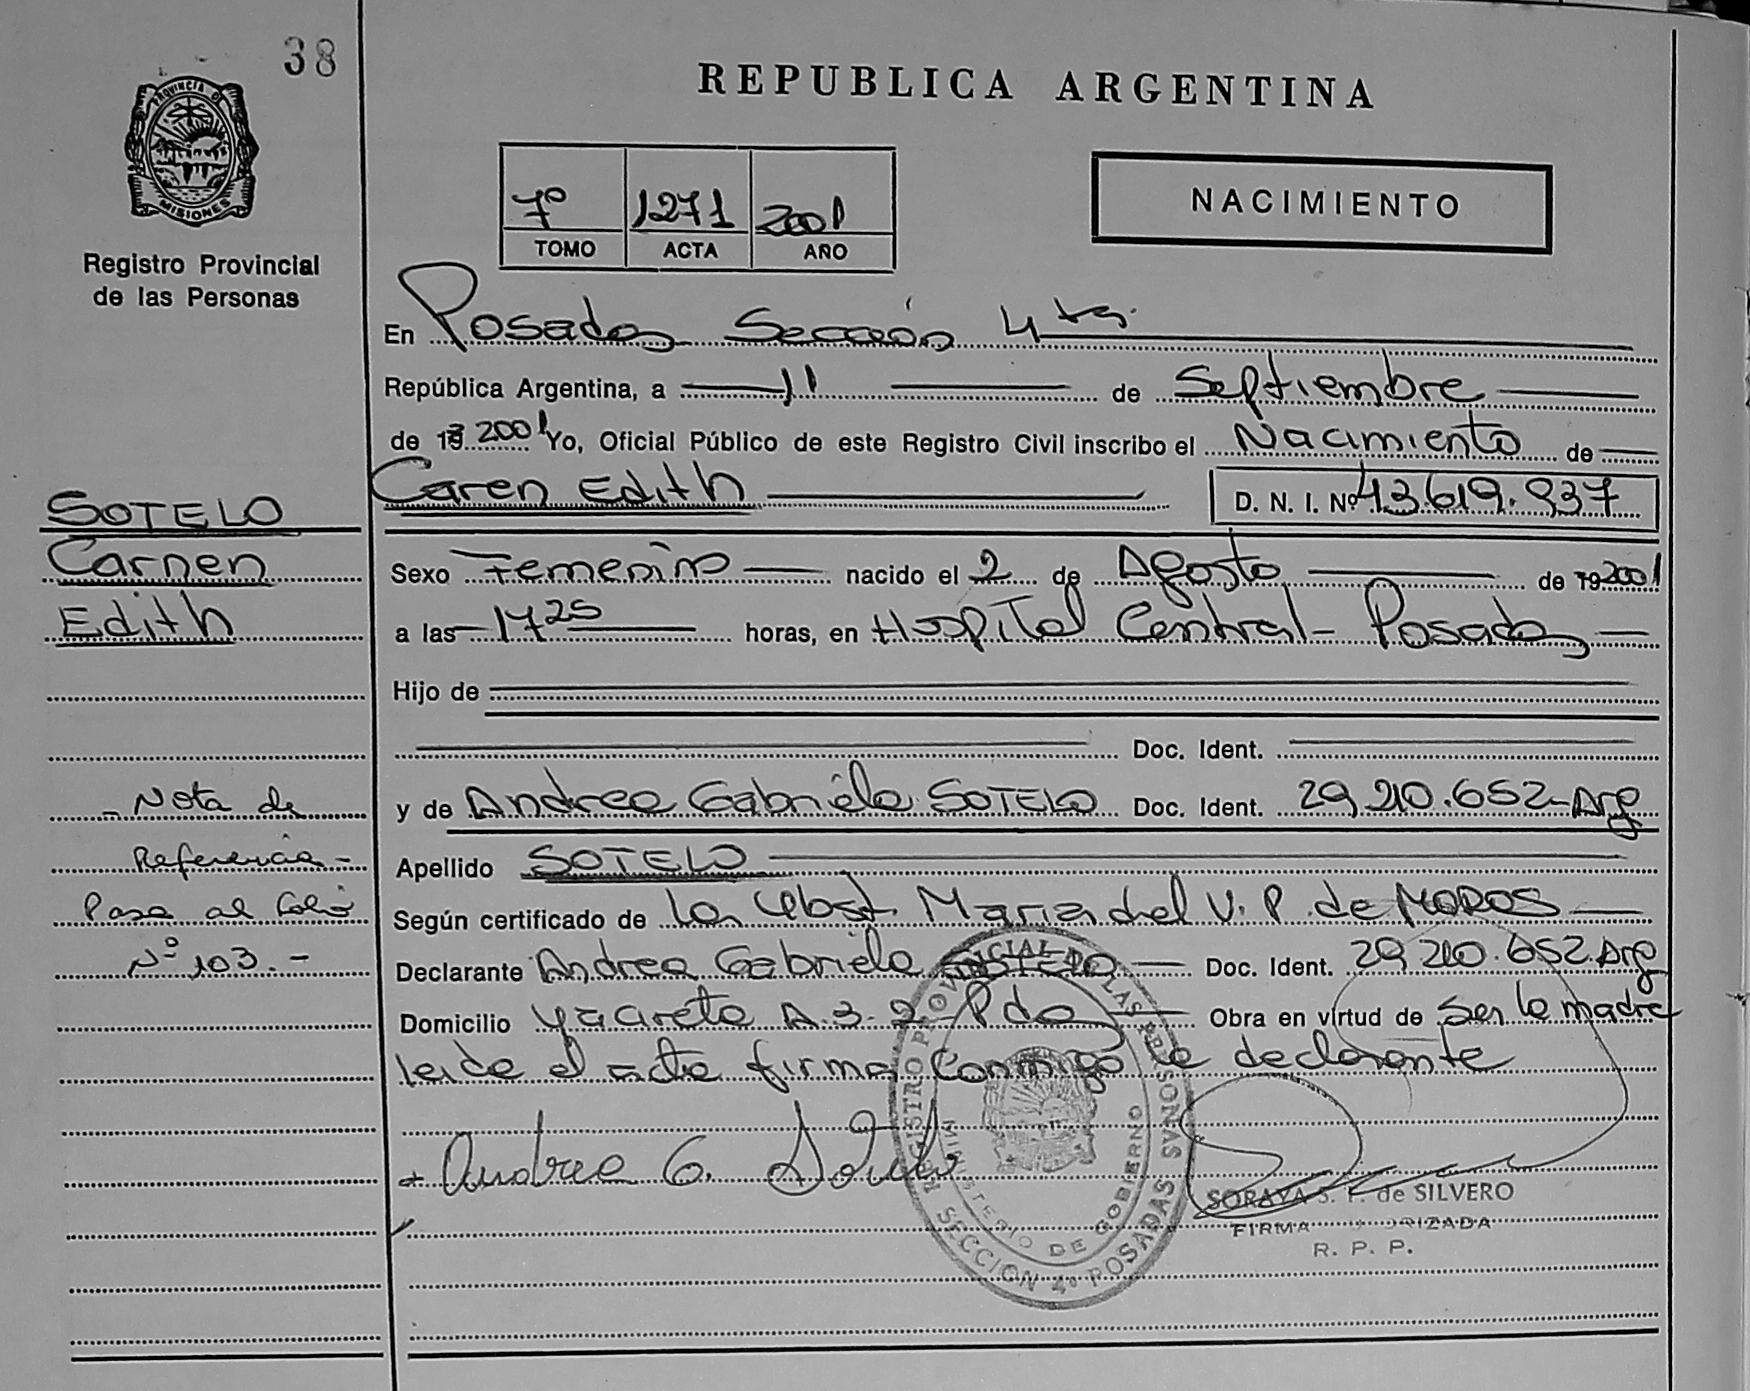 38
REPUBLICA ARGENTINA
PROVINCIA DE
MISIONES
Registro Provincial
de las Personas
7º 1271 2001
TOMO ACTA AÑO
NACIMIENTO
En Posadas Sección 4ta.
República Argentina, a 11 de Septiembre
de 19 2001 Yo, Oficial Público de este Registro Civil inscribo el Nacimiento de
Caren Edith D. N. I. Nº 43.619.937
SOTELO
Carnen
Edith
Sexo Femenino nacido el 2 de Agosto de 19 2001
a las 17 25 horas, en Hospital Central - Posadas
Hijo de
Doc. Ident.
y de Andrea Gabriela SOTELO Doc. Ident. 29.210.652-Arg
- Nota de
Referencia -
Pasa al folio
Nº 103. -
Apellido SOTELO
Según certificado de la Obst. Maria del V. P. de MOROS
Declarante Andrea Gabriela SOTELO Doc. Ident. 29.210.652.Arg
Domicilio Yacareta A.3-2 - Pdas Obra en virtud de Ser la madre
leida el acta firma conmigo la declarante
Andrea G. Sotelo
REGISTRO PROVINCIAL DE LAS PERSONAS
MINISTERIO DE GOBIERNO
SECCION 4º POSADAS
SORAYA S. F. de SILVERO
FIRMA AUTORIZADA
R. P. P.